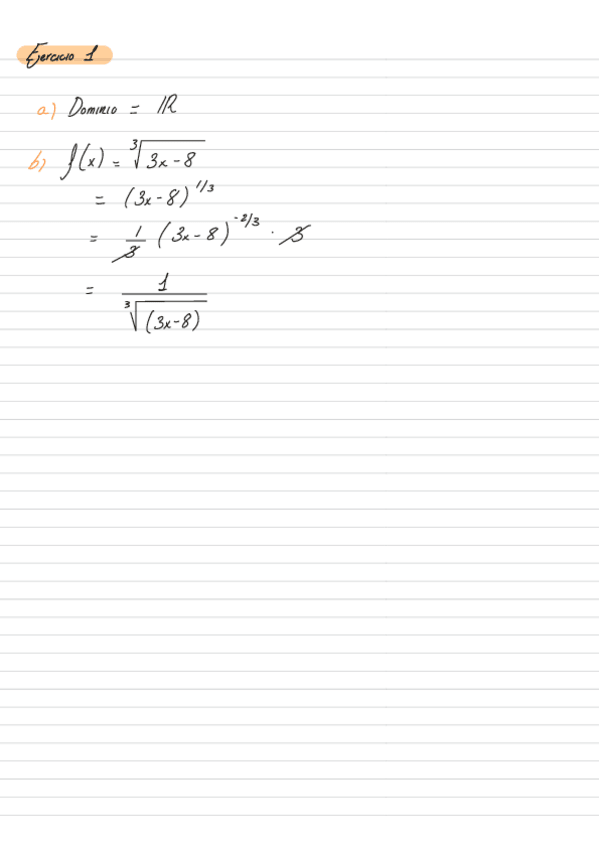 Ejercicio 1
a) Dominio = ℝ
b) f(x) = ∛(3x-8)
= (3x-8)^1/3
= 1/3 (3x-8)^-2/3 · 3
= 1/∛(3x-8)